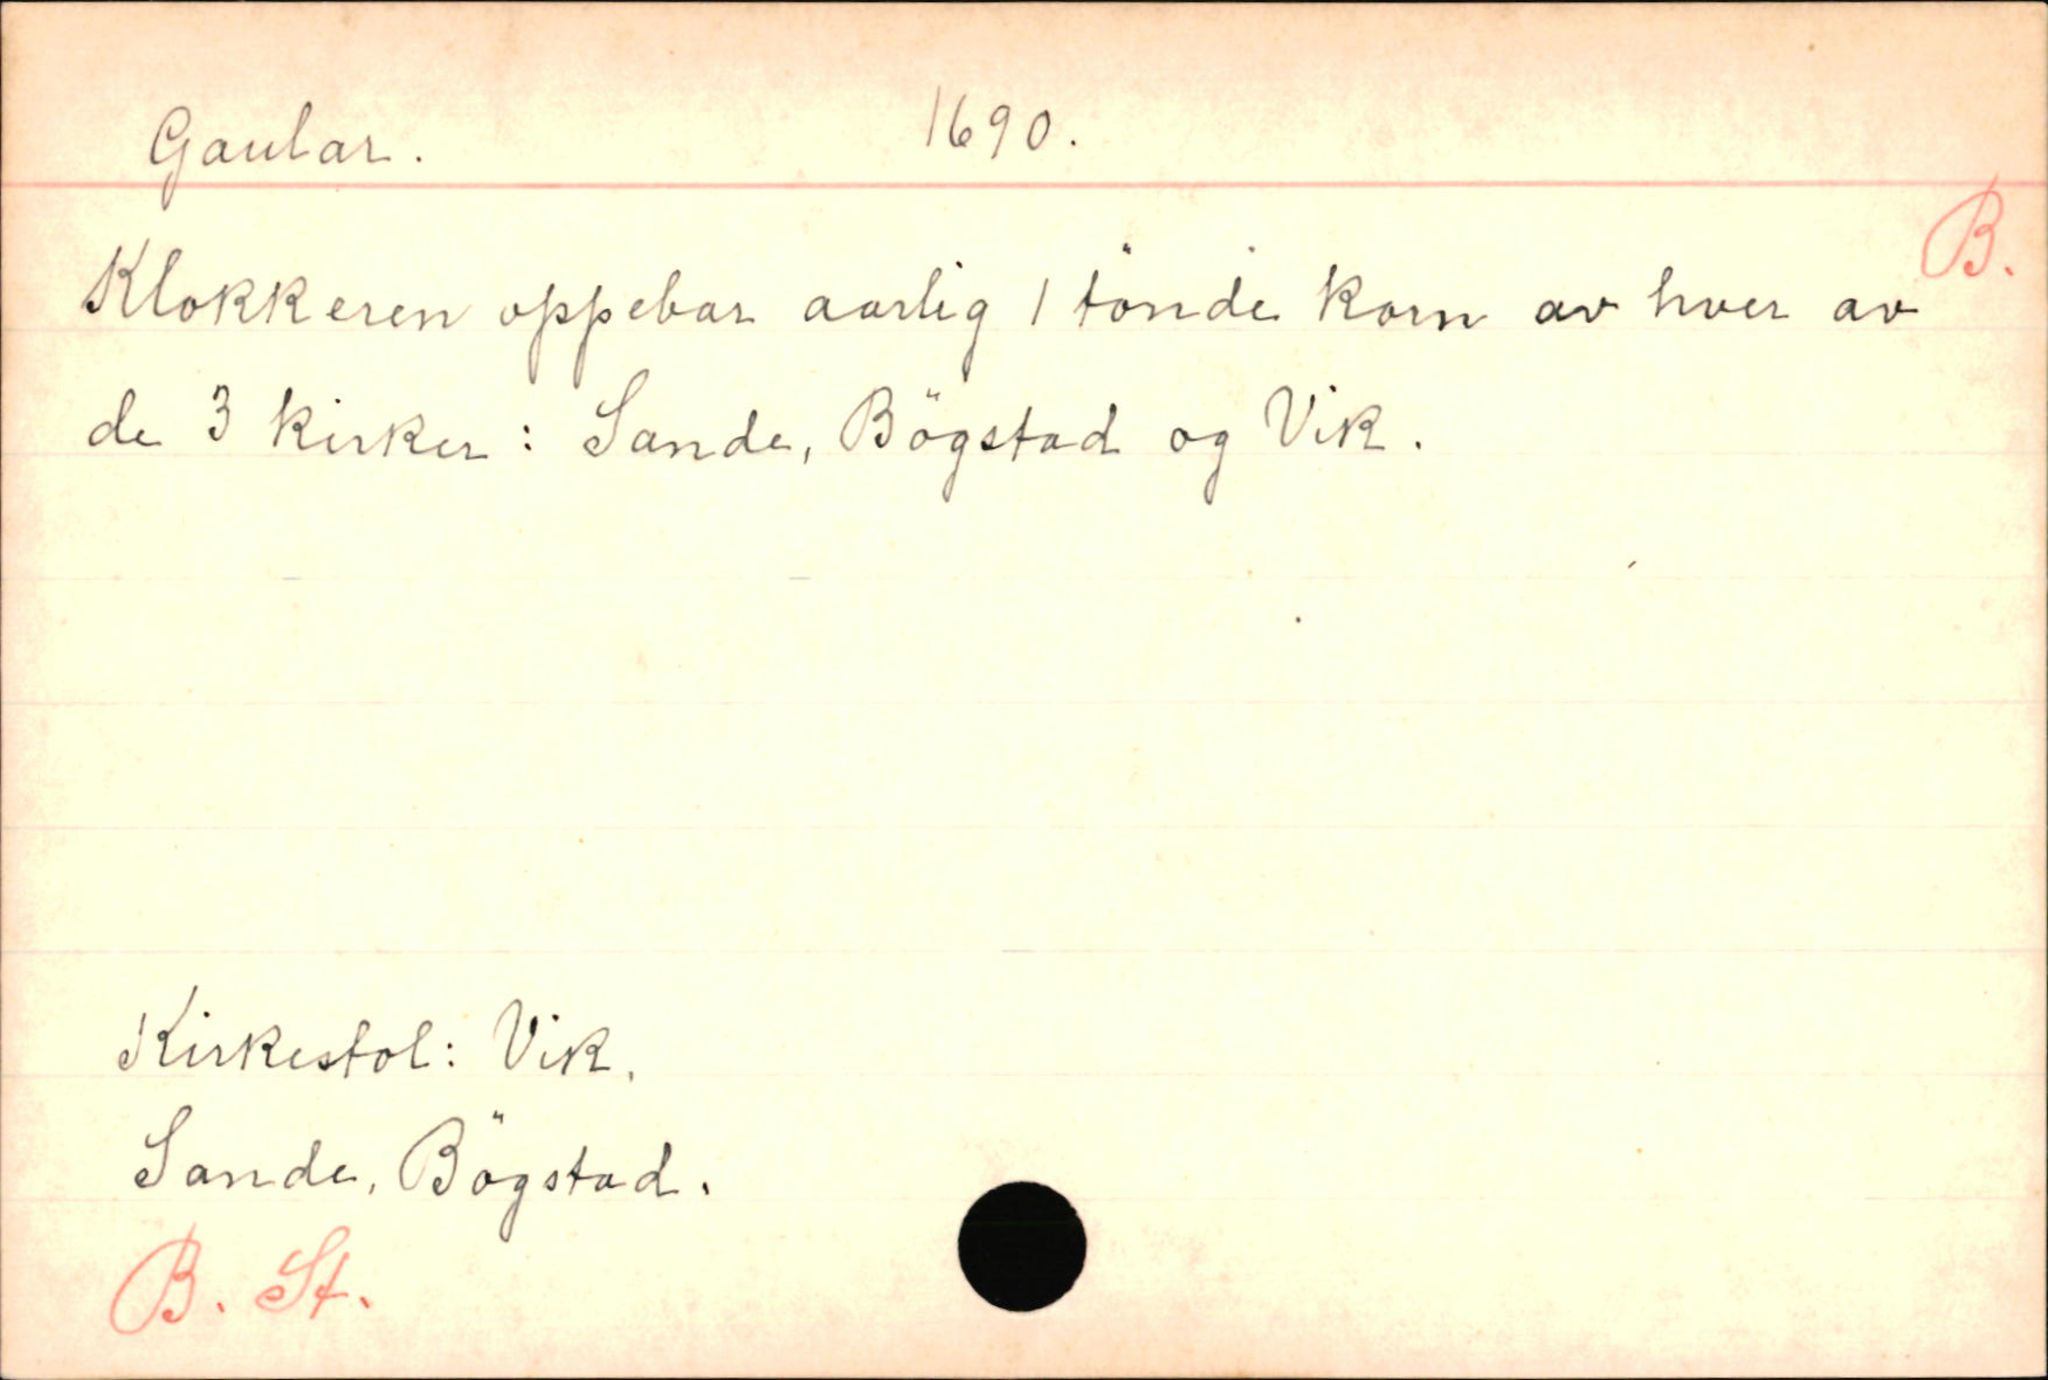 Gaular. 1690.
B.
Klokkeren oppebar aarlig 1 tönde korn av hver av
de 3 kirker: Sande, Bögstad og Vik.
Kirkestol: Vik.
Sande, Bögstad.
B. St.